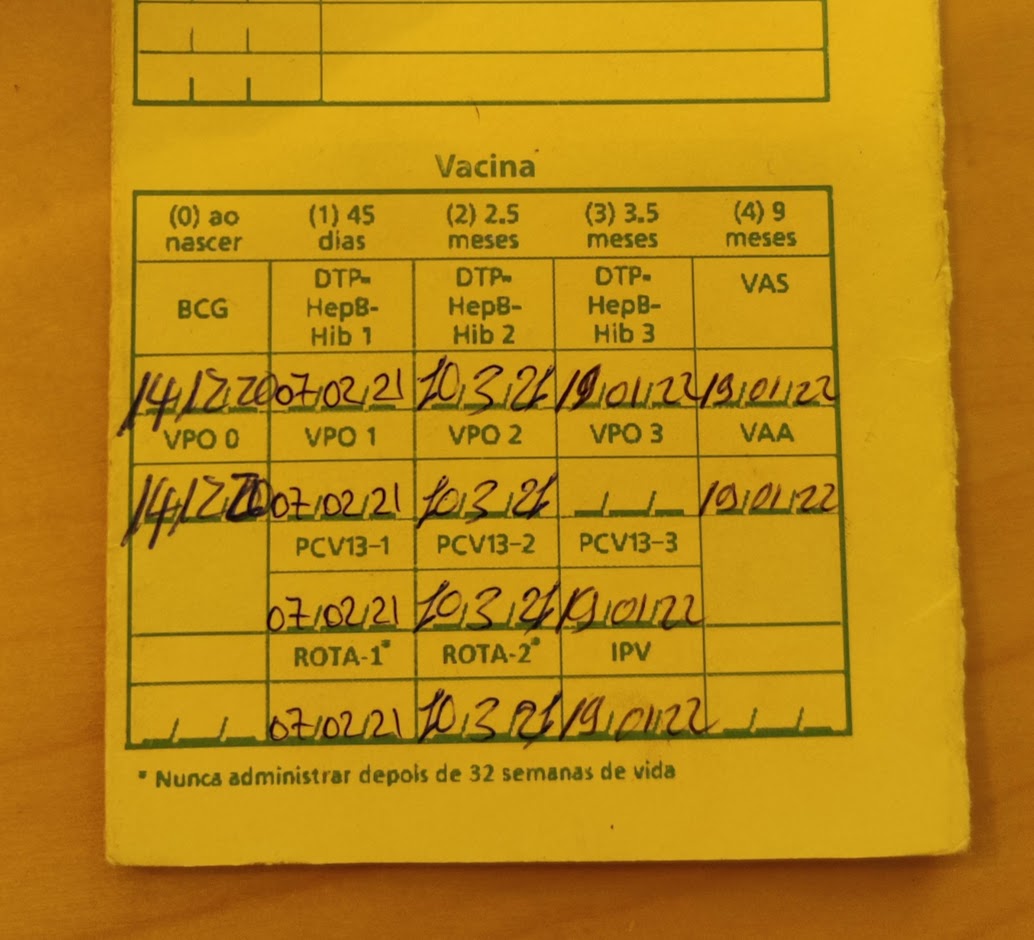 Vacina
(0) ao nascer (1) 45 dias (2) 2.5 meses (3) 3.5 meses (4) 9 meses
BCG DTP-HepB-Hib 1 DTP-HepB-Hib 2 DTP-HepB-Hib 3 VAS
14/12/20 07/02/21 10/3/21 19/01/22 19/01/22
VPO 0 VPO 1 VPO 2 VPO 3 VAA
14/12/20 07/02/21 10/3/21 _/_/_ 19/01/22
PCV13-1 PCV13-2 PCV13-3
07/02/21 10/3/21 19/01/22
ROTA-1* ROTA-2* IPV
_/_/_ 07/02/21 10/3/21 19/01/22 _/_/_
* Nunca administrar depois de 32 semanas de vida